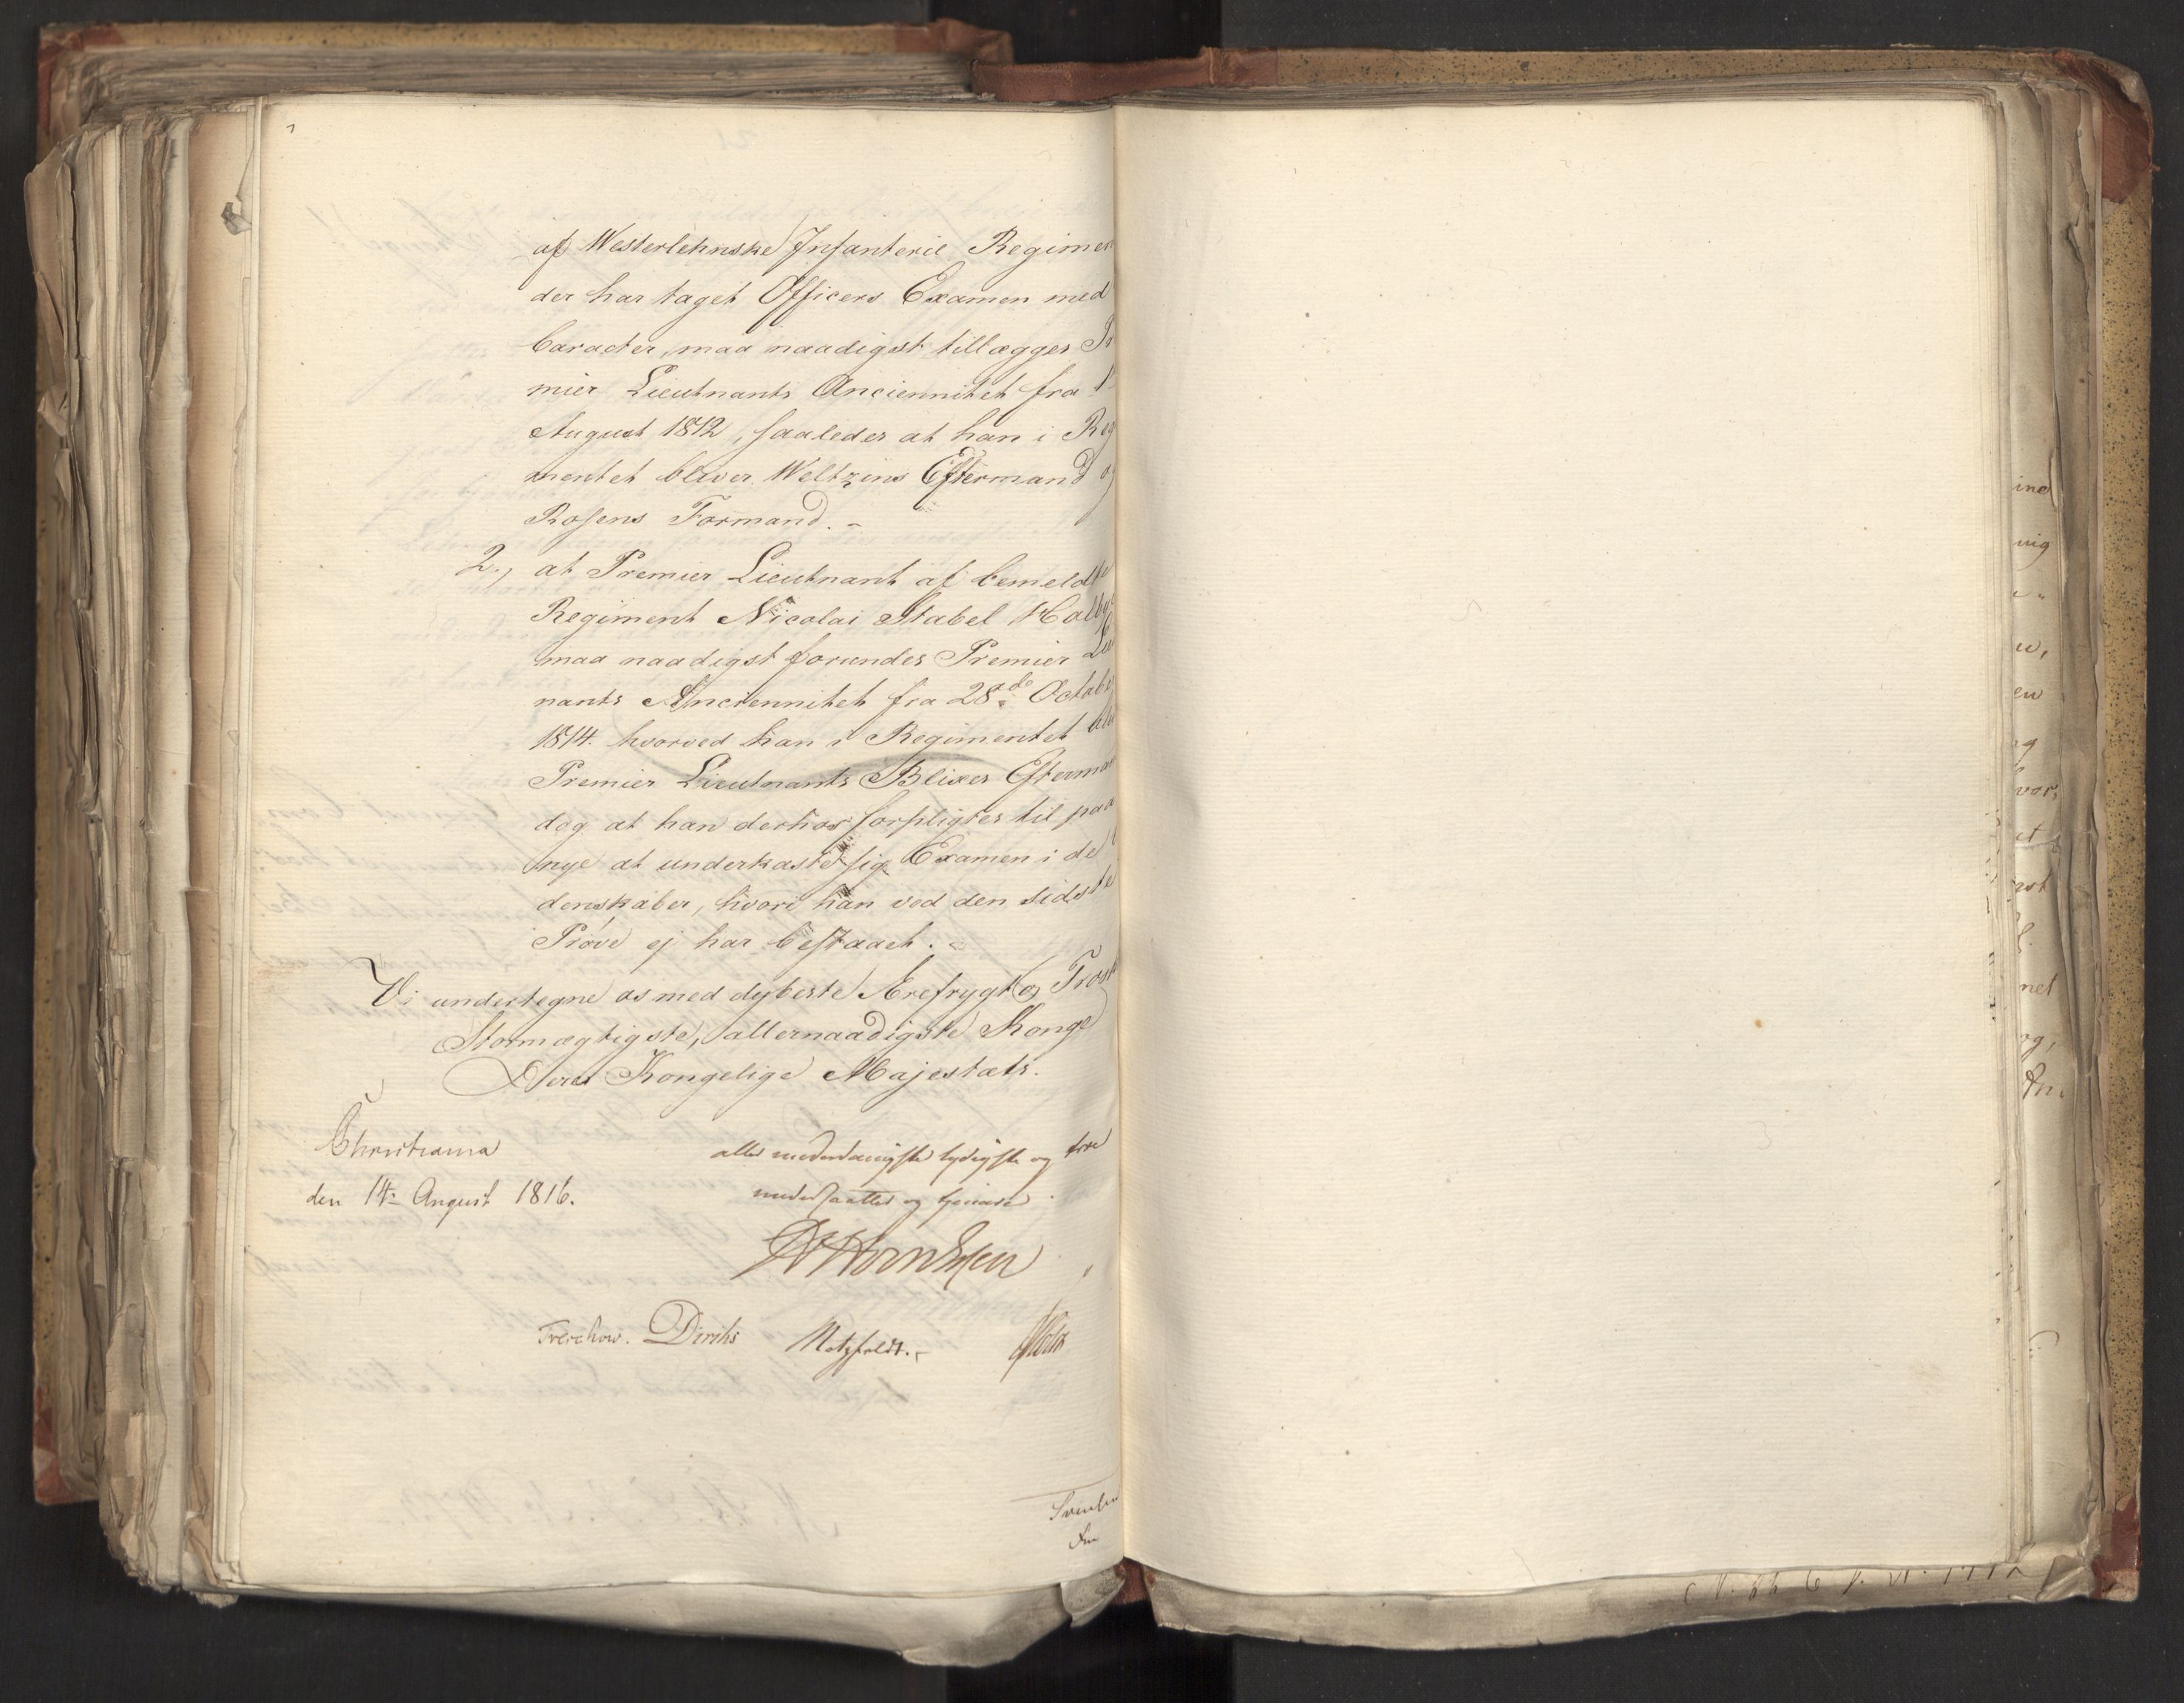 af Westerlehnske Infanterie Regimen
der har taget Officers Examen med
Caracter, maa naadigst tillægges Pr
mier Lieutnants Anciennitet fra 1
August 1812, saaledes at han i Reg
mentet bliver Weltzins Eftermand og
Rosens Formand. -
2., at Premier Lieutnant af bemeldte
Regiment Nicolai Stabel
maa naadigst forundes Premier Lieu
nants Anciennitet fra 28de Octobe
1814. hvorved han i Regimentet bliv
Premier Lieutnants Blixes Efterma
dog at han derhos forpligtes til paa
nye at underkaste sig Examen i de
denskaber, hvori han ved den sidste
Prøve ej har bestaaet.
Vi undertegne os med dybeste Ærefrygt og Trosk
Stormægtigste, allernaadigste Konge
Deres Kongelige Majestæts.
Christiania
den 14de August 1816.
allerunderdanigste lydigste og troe
undersaatter og tjenere
Treschow. Diriks Motzfeldt.
ind
nig
u,
en
vor,
et
net
og,